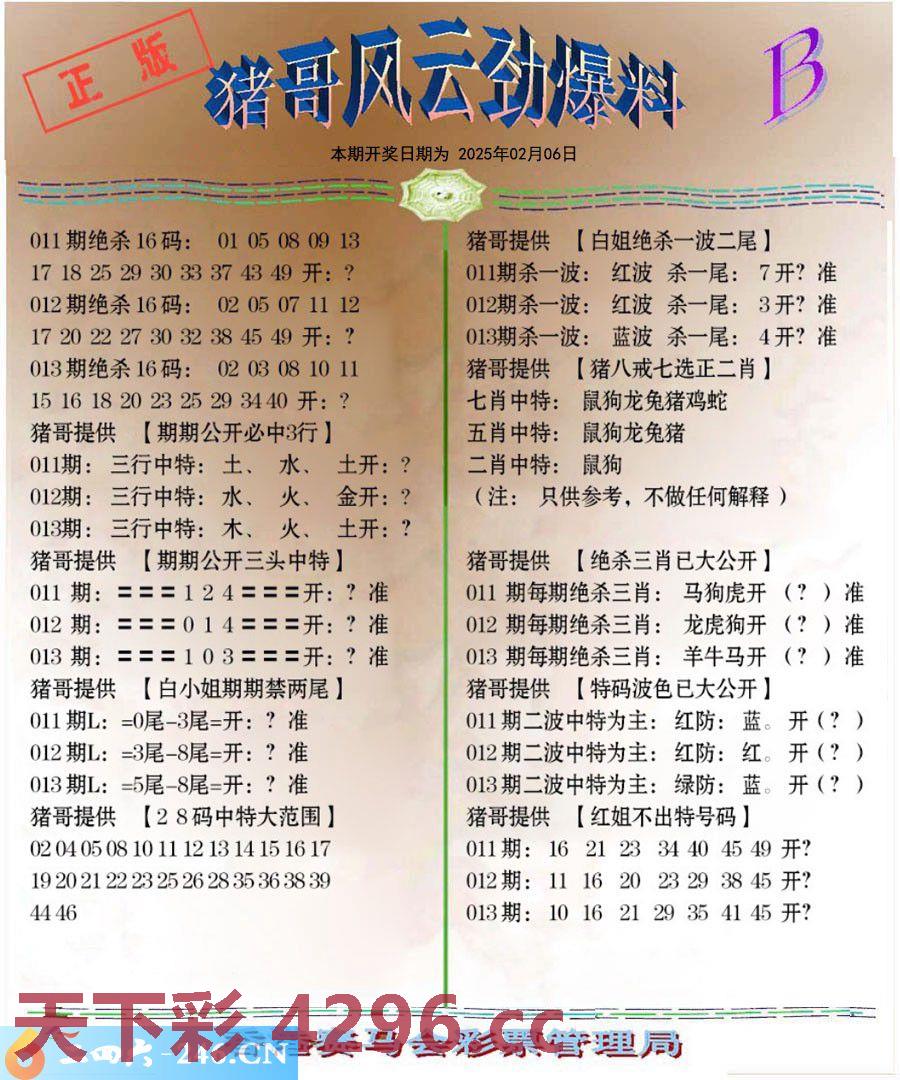 正版
猪哥风云劲爆料
B
本期开奖日期为 2025年02月06日
011期绝杀16码： 01 05 08 09 13
17 18 25 29 30 33 37 43 49 开：?
012期绝杀16码： 02 05 07 11 12
17 20 22 27 30 32 38 45 49 开：?
013期绝杀16码： 02 03 08 10 11
15 16 18 20 23 25 29 34 40 开：?
猪哥提供 【期期公开必中3行】
011期： 三行中特： 土、 水、 土开：?
012期： 三行中特： 水、 火、 金开：?
013期： 三行中特： 木、 火、 土开：?
猪哥提供 【期期公开三头中特】
011 期：〓〓〓1 2 4〓〓〓开：? 准
012 期：〓〓〓0 1 4〓〓〓开：? 准
013 期：〓〓〓1 0 3〓〓〓开：? 准
猪哥提供 【白小姐期期禁两尾】
011期L：=0尾-3尾=开：? 准
012期L：=3尾-8尾=开：? 准
013期L：=5尾-8尾=开：? 准
猪哥提供 【28码中特大范围】
02 04 05 08 10 11 12 13 14 15 16 17
19 20 21 22 23 25 26 28 35 36 38 39
44 46
猪哥提供 【白姐绝杀一波二尾】
011期杀一波： 红波 杀一尾： 7开? 准
012期杀一波： 红波 杀一尾： 3开? 准
013期杀一波： 蓝波 杀一尾： 4开? 准
猪哥提供 【猪八戒七选正二肖】
七肖中特： 鼠狗龙兔猪鸡蛇
五肖中特： 鼠狗龙兔猪
二肖中特： 鼠狗
（注： 只供参考，不做任何解释 ）
猪哥提供 【绝杀三肖已大公开】
011 期每期绝杀三肖： 马狗虎开 （?）准
012 期每期绝杀三肖： 龙虎狗开 （?）准
013 期每期绝杀三肖： 羊牛马开 （?）准
猪哥提供 【特码波色已大公开】
011期二波中特为主： 红防： 蓝。 开（?）
012期二波中特为主： 红防： 红。 开（?）
013期二波中特为主： 绿防： 蓝。 开（?）
猪哥提供 【红姐不出特号码】
011期： 16 21 23 34 40 45 49 开?
012期： 11 16 20 23 29 38 45 开?
013期： 10 16 21 29 35 41 45 开?
天下彩 4296.cc
二四六-246.CN
马会彩票管理局